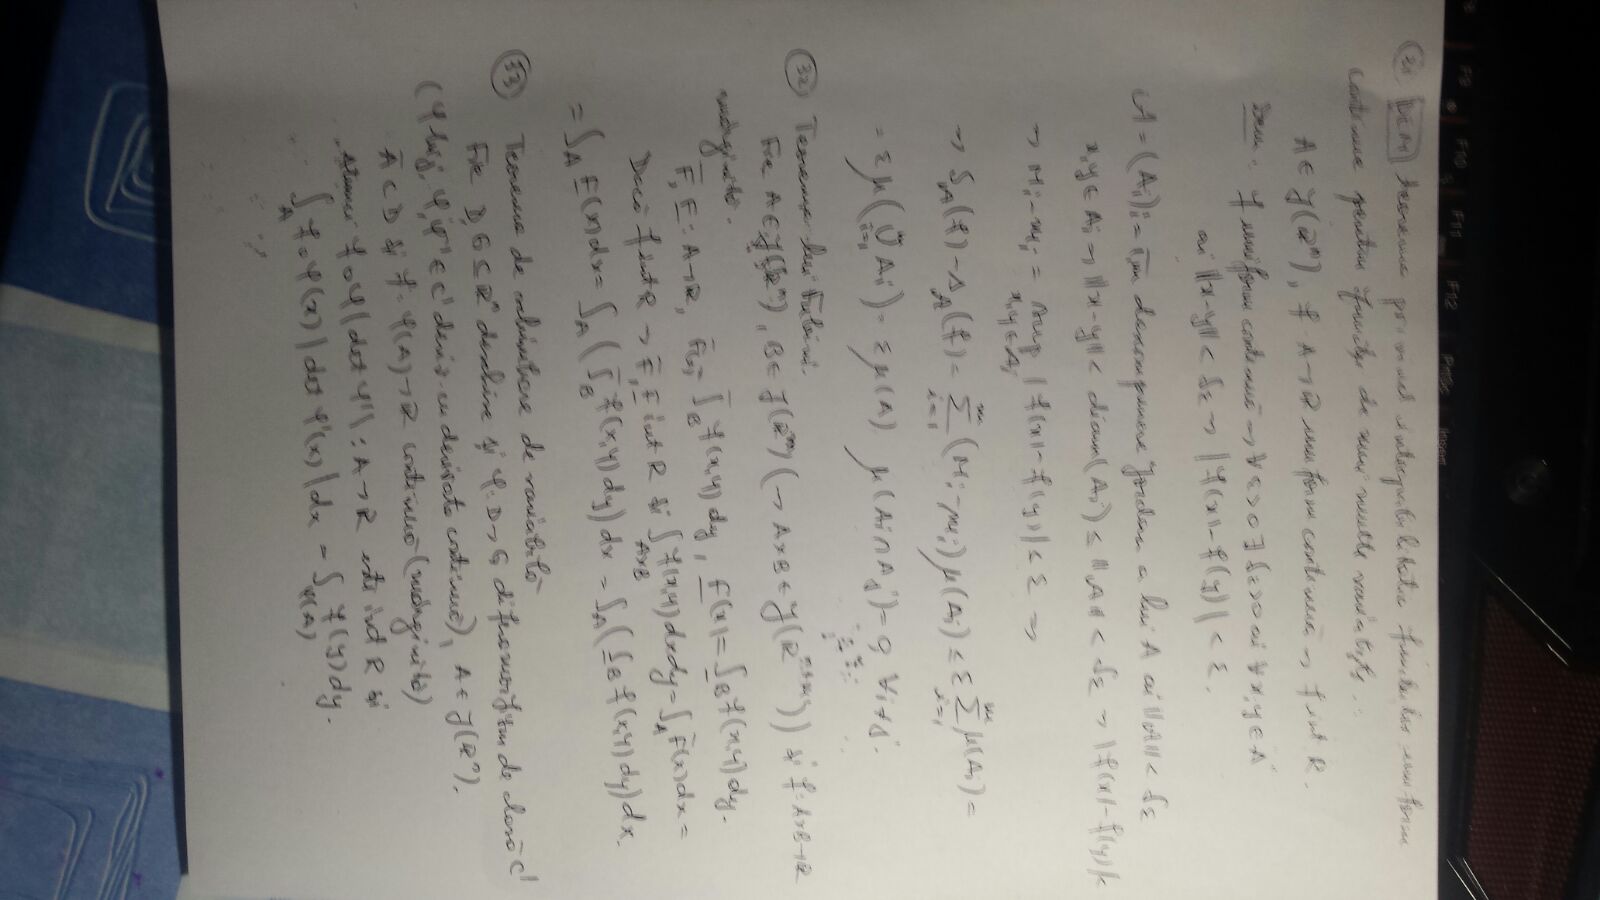 F9 F10 F11 F12 PrtSc Insert
(31) DEM Teorema privind integrabilitatea functiilor uniform
continue pentru funcții de mai multe variabile.
A ∈ J(ℝⁿ), f: A→ℝ uniform continuă ⇒ f int R.
Dem. f uniform continuă ⇒ ∀ε>0 ∃ δε>0 aî ∀x,y∈A
aî ‖x-y‖ < δε ⇒ |f(x)-f(y)| < ε.
𝒜 = (Aᵢ)ᵢ₌₁,ₘ descompunere Jordan a lui A aî ‖𝒜‖ < δε
x,y ∈ Aᵢ ⇒ ‖x-y‖ < diam(Aᵢ) ≤ ‖𝒜‖ < δε ⇒ |f(x)-f(y)|<
⇒ Mᵢ-mᵢ = sup x,y∈Aᵢ |f(x)-f(y)| ≤ ε ⇒
⇒ S_𝒜(f) - s_𝒜(f) = Σᵢ₌₁ᵐ (Mᵢ-mᵢ) μ(Aᵢ) ≤ ε Σᵢ₌₁ᵐ μ(Aᵢ) =
= ε μ(⋃ᵢ₌₁ᵐ Aᵢ) = ε μ(A) μ(Aᵢ∩Aⱼ) = 0, ∀i≠j.
(32) Teorema lui Fubini.
Fie A∈J(ℝⁿ), B∈J(ℝᵐ) (⇒ A×B∈J(ℝⁿ⁺ᵐ)) și f: A×B→ℝ
mărginită.
F̄, F̲: A→ℝ, F̄(x) = ∫̄_B f(x,y) dy, F̲(x) = ∫̲_B f(x,y) dy.
Dacă f int R ⇒ F̄, F̲ int R și ∫_{A×B} f(x,y) dxdy = ∫_A F̄(x) dx =
= ∫_A F̲(x) dx = ∫_A (∫̄_B f(x,y) dy) dx = ∫_A (∫̲_B f(x,y) dy) dx.
(33) Teorema de schimbare de variabilă
Fie D, G ⊆ ℝⁿ deschise și φ: D→G difeomorfism de clasă C¹
(φ bij, φ, φ⁻¹ ∈ C¹ deriv. cu derivata continuă), A∈J(ℝⁿ),
Ā ⊂ D și f: φ(A)→ℝ continuă (mărginită)
Atunci f∘φ |det φ'| : A→ℝ este int R și
∫_A f∘φ(x) |det φ'(x)| dx = ∫_{φ(A)} f(y) dy.